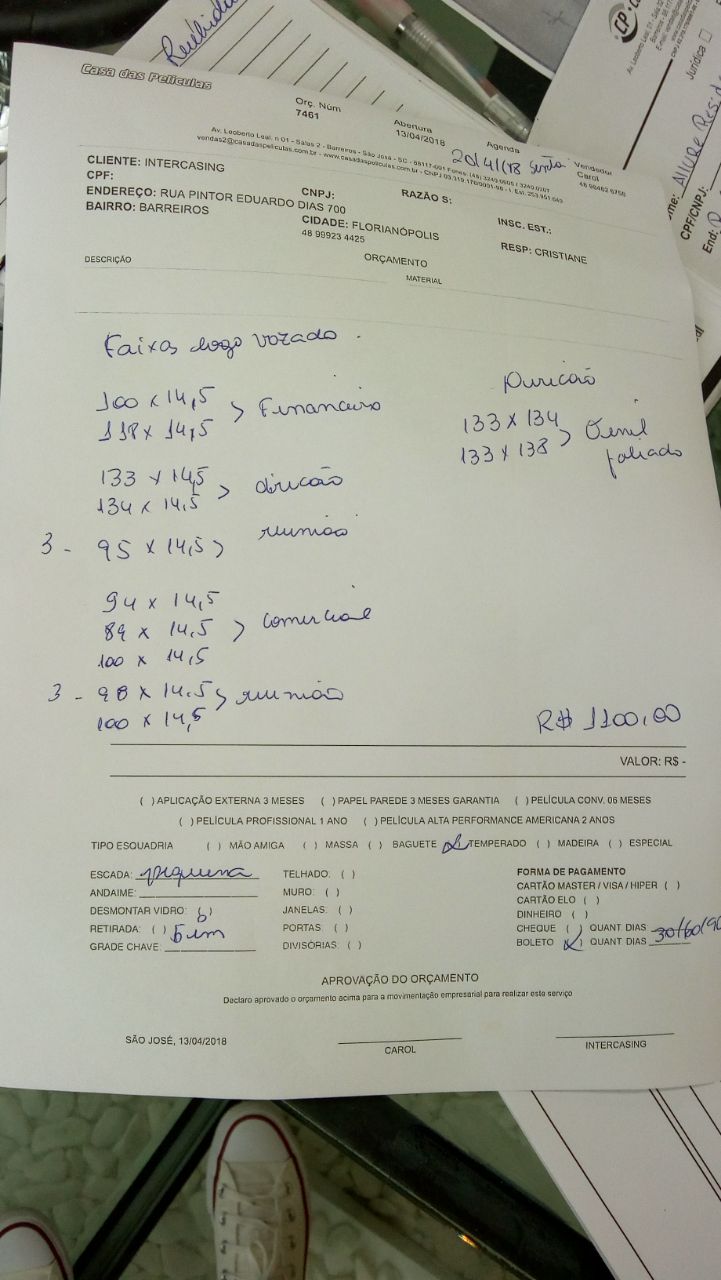 Recebida
Casa das Películas
Orç. Núm
7461
Abertura
13/04/2018
Agenda
20/4/18 sexta
Vendedor
Carol
48 98462 6756
Av. Leoberto Leal, n 01 - Salas 2 - Barreiros - São José - SC - 88117-001 Fones: (48) 3240.0606 / 3240.0207
vendas2@casadaspeliculas.com.br - www.casadaspeliculas.com.br - CNPJ
CLIENTE: INTERCASING
CPF:
CNPJ:
RAZÃO S:
INSC. EST.:
ENDEREÇO: RUA PINTOR EDUARDO DIAS 700
BAIRRO: BARREIROS
CIDADE: FLORIANÓPOLIS
48 99923 4425
RESP: CRISTIANE
ORÇAMENTO
DESCRIÇÃO
MATERIAL
Faixas logo vazado.
100 x 14,5
118 x 14,5 > Financeiro
133 x 14,5
134 x 14,5 > direcão
3 - 95 x 14,5 > reunião
94 x 14,5
89 x 14,5 > comercial
100 x 14,5
3 - 98 x 14,5 > reunião
100 x 14,5
Direcão
133 x 134
133 x 138 > Vinil
jateado
R$ 1100,00
VALOR: R$ -
( ) APLICAÇÃO EXTERNA 3 MESES ( ) PAPEL PAREDE 3 MESES GARANTIA ( ) PELÍCULA CONV. 06 MESES
( ) PELÍCULA PROFISSIONAL 1 ANO ( ) PELÍCULA ALTA PERFORMANCE AMERICANA 2 ANOS
TIPO ESQUADRIA ( ) MÃO AMIGA ( ) MASSA ( ) BAGUETE (x) TEMPERADO ( ) MADEIRA ( ) ESPECIAL
ESCADA: pequena
ANDAIME:
DESMONTAR VIDRO: ( )
RETIRADA: ( ) Sim
GRADE CHAVE:
TELHADO: ( )
MURO: ( )
JANELAS: ( )
PORTAS: ( )
DIVISÓRIAS: ( )
FORMA DE PAGAMENTO
CARTÃO MASTER / VISA / HIPER ( )
CARTÃO ELO ( )
DINHEIRO ( )
CHEQUE ( ) QUANT DIAS
BOLETO (x) QUANT DIAS 30/60/90
APROVAÇÃO DO ORÇAMENTO
Declaro aprovado o orçamento acima para a movimentação empresarial para realizar este serviço
SÃO JOSÉ, 13/04/2018
CAROL
INTERCASING
CP
Jurídica
Allure Resid
CPF/CNPJ:
End: